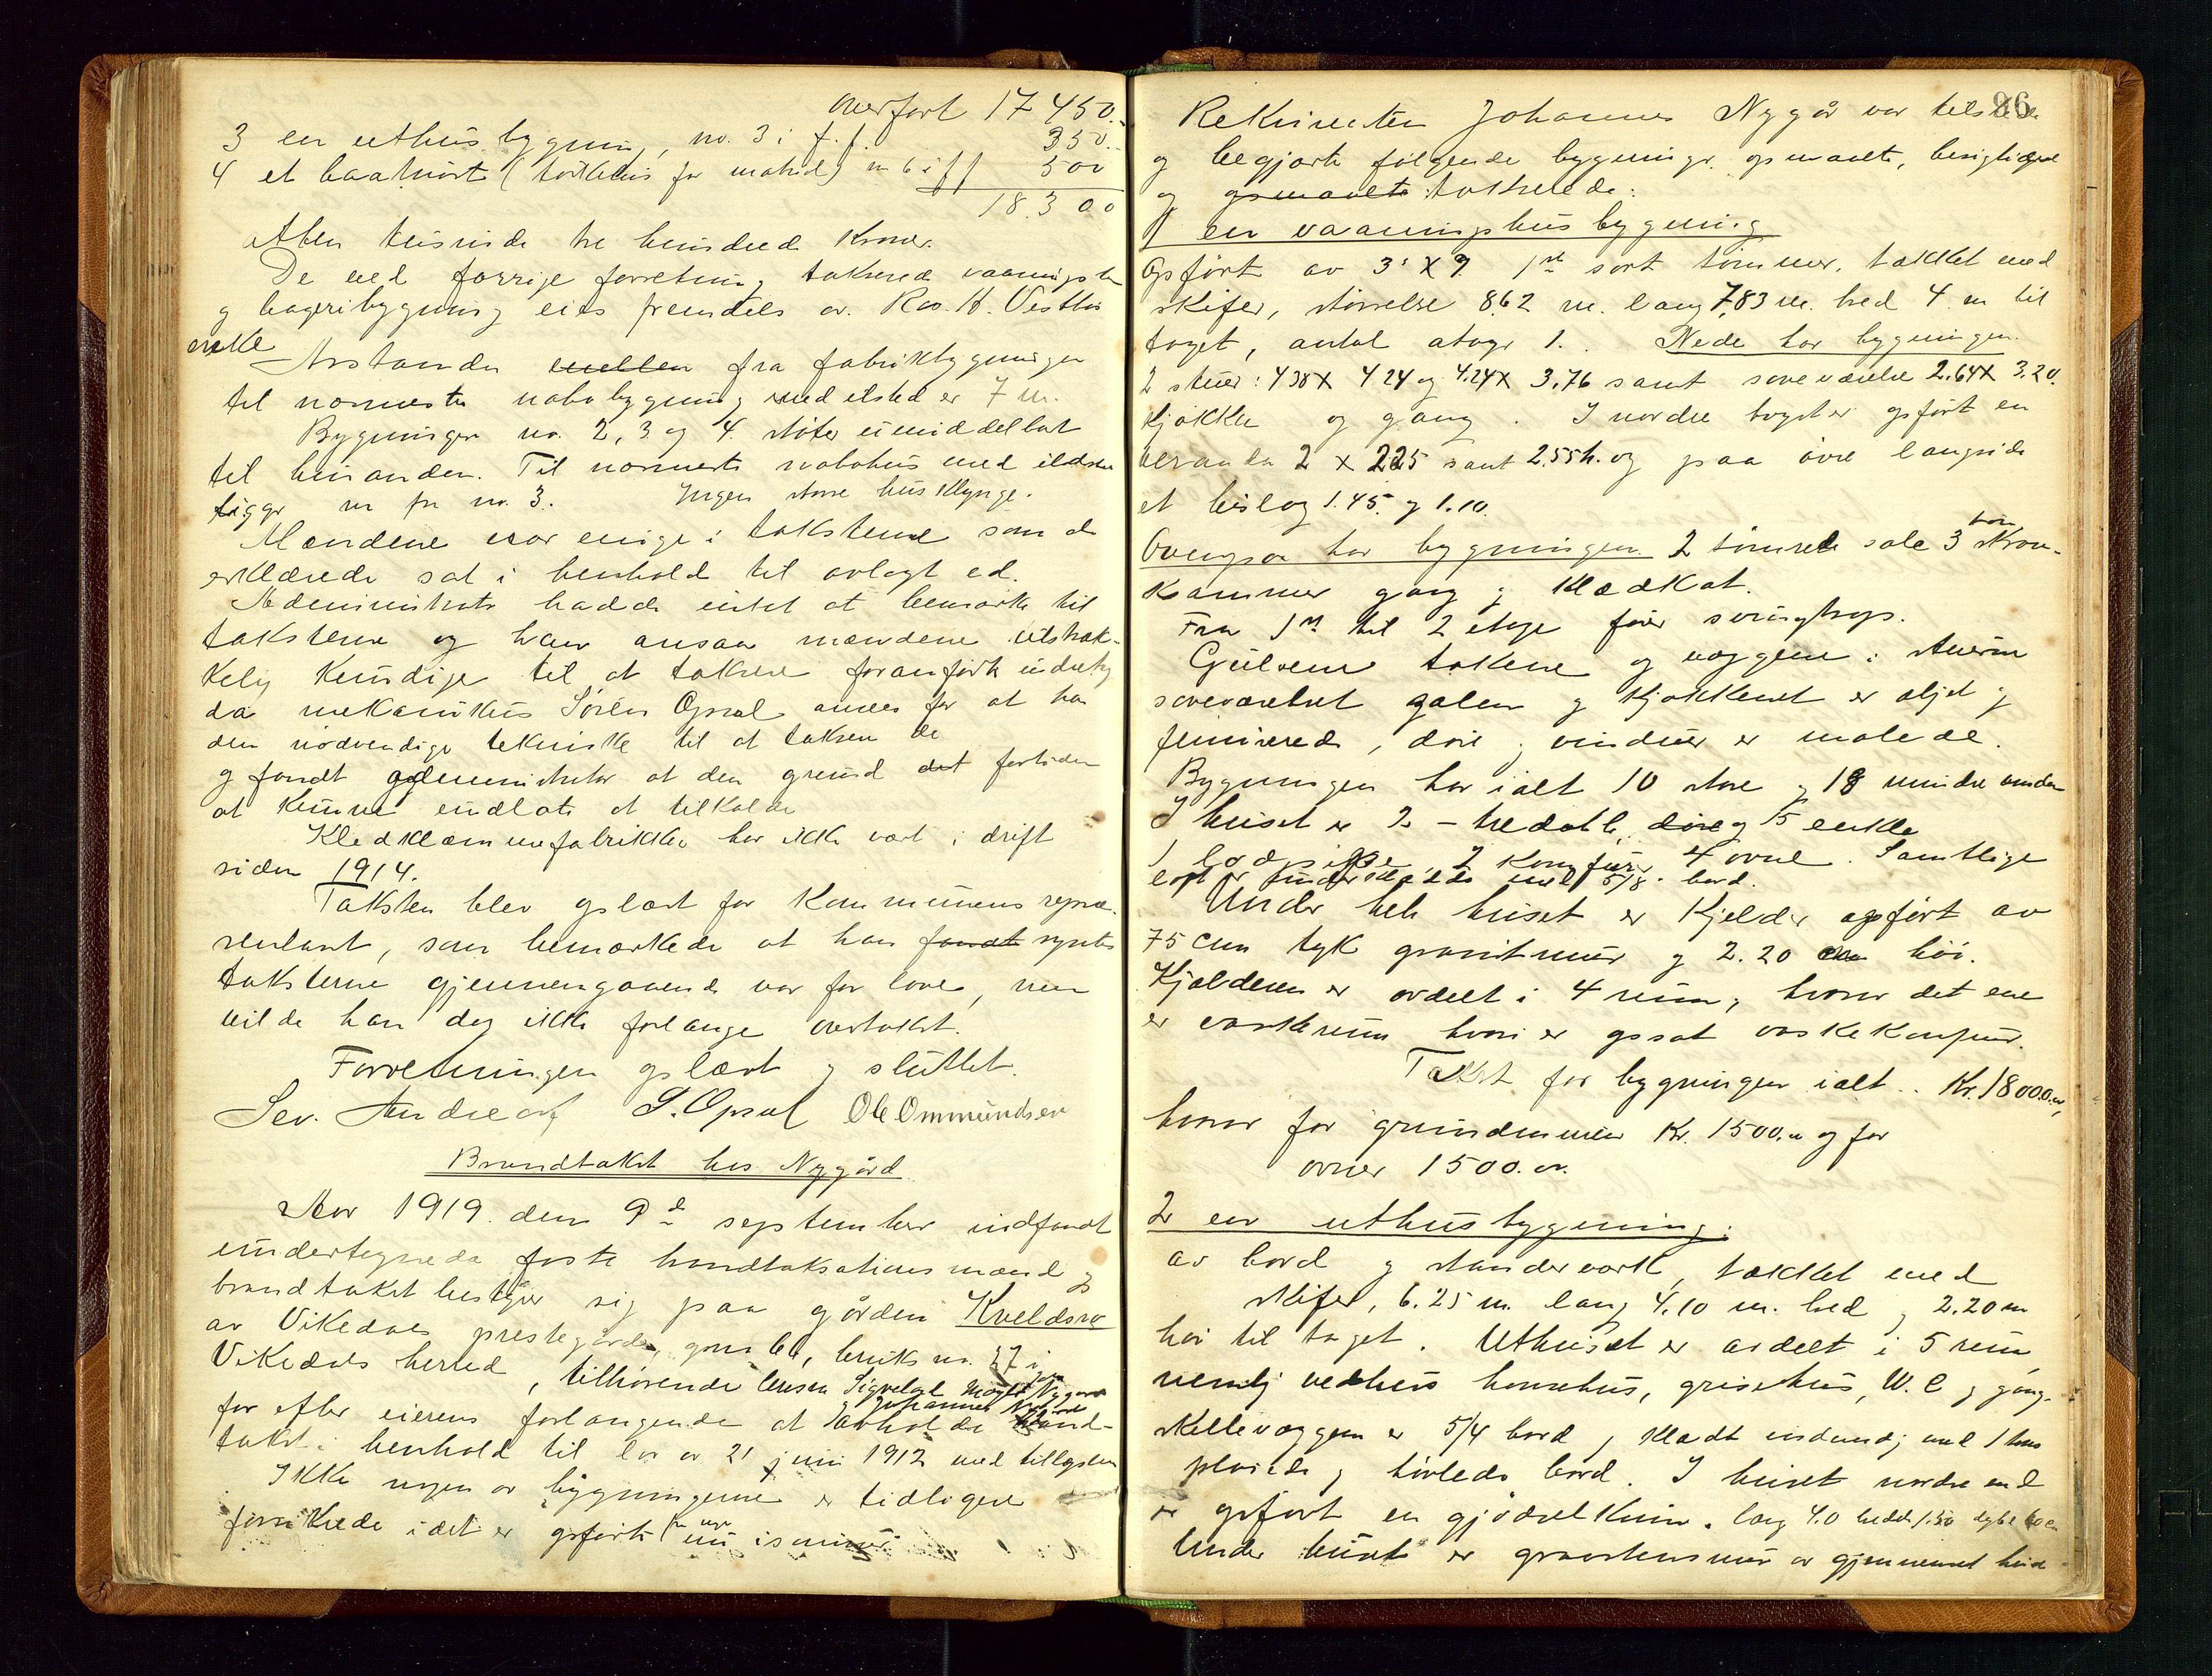 overført 17 450.
3 en uthusbygning, no. 3 i f. f. 350.
4 et baatnøst (tørkehus for ) no 6 i f f 500
18.300
Atten tusinde tre hundrede Kroner.
De ved forrige forretning takserede vaaningshus
og bageribygning eies fremdeles av Ras. H. Vestbø
enke
Avstanden mellem fra fabrikbygningen
til nærmeste nabobygning med ilsted er 7 m.
Bygninger no. 2, 3 og 4. støter umiddelbart
til hinanden. Til nærmeste nabohus med ildsted
ligger m fra no. 3. Ingen større husklynge.
Mændene var enige i taksterne som de
erklærede sat i henhold til avlagt ed.
Administrator hadde intet at bemærke til
taksterne og han ansaa mændene tilstræk-
kelig Kundige til at taksere foranførte
da mekanikus Sören Opsal anees for at ha
den nödvendige tekniske til at taksere de
og fandt administrator at den grund det fortiden
at kunne undlate at tilkalde
Klædklemmefabrikken har ikke vært i drift
siden 1914.
Taksten blev oplæst for Kommunens repræ-
sentant, som bemærkede at han fandt syntes
taksterne gjennemgaaende var for lave, men
vilde han dog ikke forlange overtakst.
Forretningen oplæst og sluttet.
Sev. Andreas S. Opsal Ole Ommundsen
Brandtakst hos Nygård
Aar 1919. den 9de september indfandt
undertegnede faste brandtaksationsmænd og
brandtakstbestyrer sig paa gården Kveldsro
av Vikedals prestegård, gnr. 61, bruks nr. 27 i
Vikedals herred, tilhørende Nygaard
Johannes Nygård
for efter eierens forlangende at avholde brand-
takst i henhold til lov av 21 juni 1912 med tillægslov
Ikke nogen av bygningerne er tidligere
forsikrede idet er opførte fra nye nu i sommer
86
Rekvirenten Johannes Nygår var tilstede
og begjærte følgende bygninger opmaalte, besigtiget
og opmaalte takserede:
1 en vaaningshusbygning
Opført av 3" X 9 1st sort tömmer, tækket med
skifer, størrelse 8.62 m. lang 7,83 m. bred 4 m til
taget, antal etager 1. Nede har bygningen
2 stuer: 4 38 X 4 24 og 4.24 X 3,76 samt soveværelse 2.64 X 3.20.
Kjøkken og gang. I nordre er opført en
veranda 2 X 225 samt 2,55 h. og paa øvre langside
et bislag 1.45 og 1.10.
Ovenpaa har bygningen 2 tömrede sale 3 Krav-
kammer gang og klædkot.
Fra 1st til 2 etage fører svingtrap.
Gulvene takene og væggene i stuerne
soveværelset galen og kjøkkenet er oljet og
ferniserede, døre og vinduer er malede.
Bygningen har ialt 10 store og 18 mindre vinduer
I huset er 2 - tredobb. döre og 15 enkle
1 ladpipe, 2 Komfurer 4 ovne. Samtlige
loft er med 5/8 bord.
Under hele huset er Kjelder opført av
75 cm tyk granitmur og 2.20 cm høi.
Kjælderen er avdelt i 4 rum, hvorav det ene
er vaskerum hvori er opsat vaskekomfur.
Takst for bygningen ialt .. Kr. 18000.00,
hvorav for grundmuren Kr. 1500.00 og for
ovner 1500.00.
2 en uthusbygning:
av bord og standerverk, tækket med
skifer, 6.25 m. lang 4.10 m. bred og 2.20 m
høi til taget. Uthuset er avdelt i 5 rum
nemlig vedhus hønsehus, grisehus, W. C og gang.
skillevæggen er 5/4 bord og klædt indvendig med 1 toms
pløiede og høvlede bord. I huset nordre ende
er opført en gjødselkum. lang 4.0 bredde 1.50 dybde 60 cm
Under huset er graastensmur av gjennemsnit høide